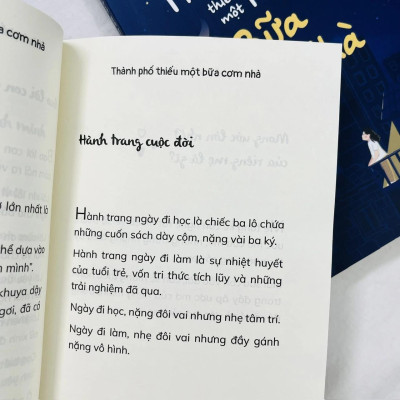 a cơm nhà
lớn nhất là
hể dựa vào
n mình".
khuya dậy
gơi, đã có
Thành phố thiếu một bữa cơm nhà
Hành trang cuộc đời
Hành trang ngày đi học là chiếc ba lô chứa
những cuốn sách dày cộm, nặng vài ba ký.
Hành trang ngày đi làm là sự nhiệt huyết
của tuổi trẻ, vốn tri thức tích lũy và những
trải nghiệm đã qua.
Ngày đi học, nặng đôi vai nhưng nhẹ tâm trí.
Ngày đi làm, nhẹ đôi vai nhưng đầy gánh
nặng vô hình.
thiế
một
Bữa
hà